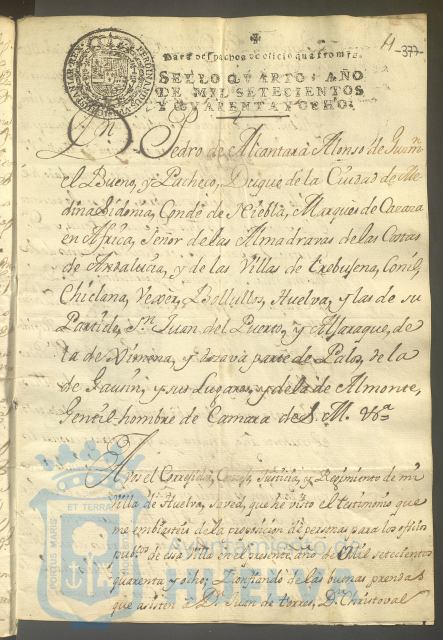 H 377
Para despachos de oficio quatro mrs.
SELLO QVARTO, AÑO
DE MIL SETECIENTOS
Y QVARENTA Y OCHO.
Dn. Pedro de Alcantara Alonso de Guzmn.
el Bueno, y Pacheco, Duque de la Ciudad de Me
dinasidonia, Conde de Niebla, Marques de Cazaza
en Africa, Señor de las Almadravas de las Costas
de Andalucia, y de las Villas de Trebujena, Conil,
Chiclana, Vexer, Bollullos, Huelva, y las de su
Partido, Sn. Juan del Puerto, y Aljaraque, de
la de Ximena, y octava parte de Palos, de la
de Gausin, y sus Lugares, y de la de Almonte,
Gentil-hombre de Camara de S. M. &a
A vos el Corregidor, Concejo, Justicia, y Regimiento de mi
Villa de Huelva, saved, que he visto el testimonio que
me embiasteis de la proposicion de personas para los oficios
publicos de essa Villa en el presente, año de Mil setecientos
quarenta y ocho; Y confiando de las buenas prendas
que asisten à Dn. Juan de torres, Dn. Christoval
PORTUS MARIS ET TERRAE
Ayuntamiento de
HUELVA